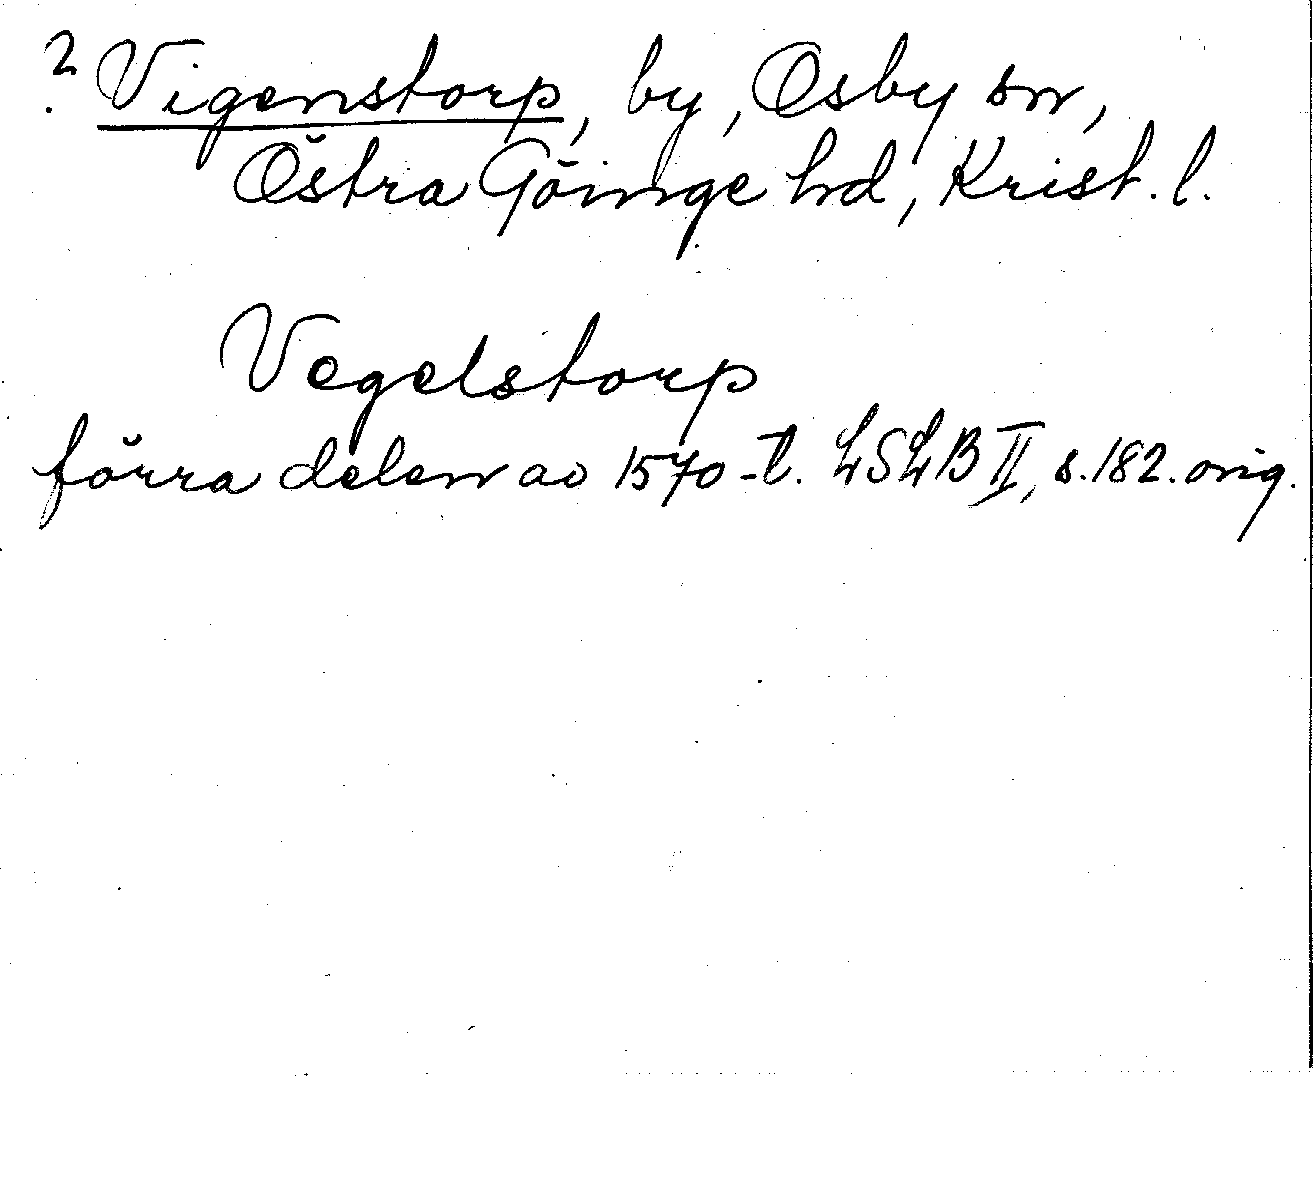 ? Vigenstorp, by, Osby sn,
Östra Göinge hd, Krist. l.
Vegelstorp
förra delen av 1570-t. LSLB II, s. 182. orig.